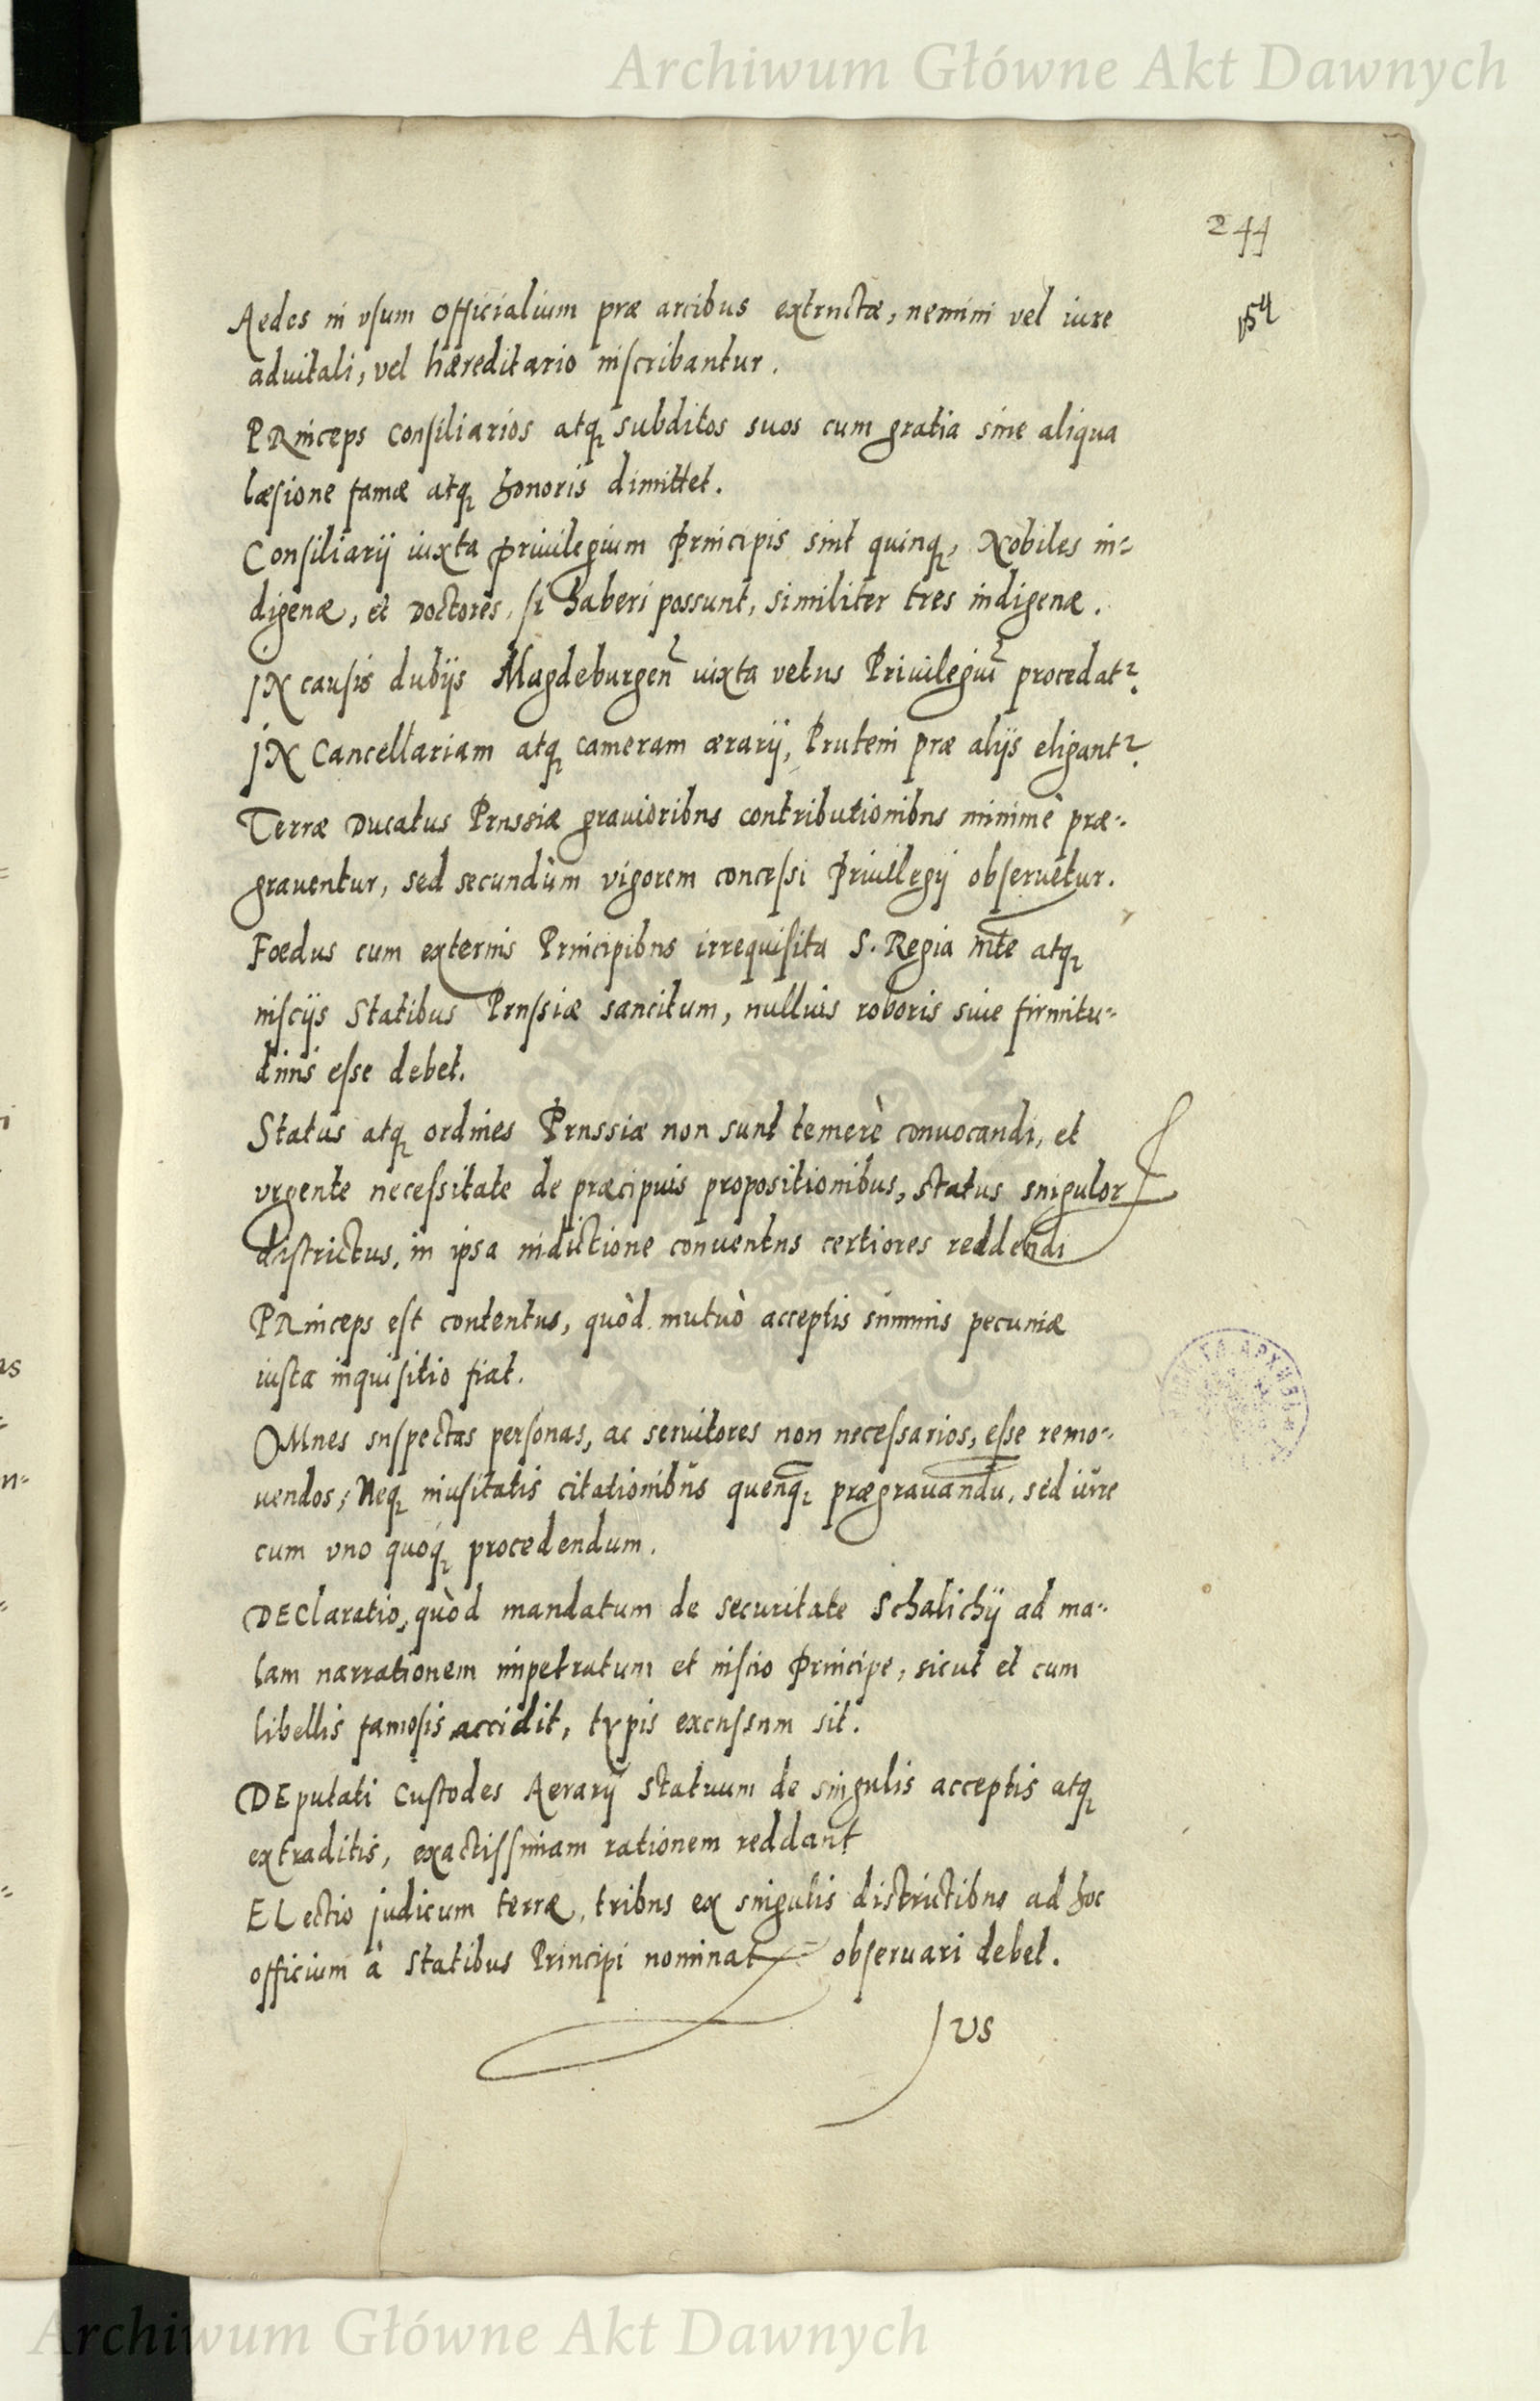 Archiwum Główne Akt Dawnych
244
Aedes in vsum Officialium præ arcibus extructæ, nemini vel iure
aduitali, vel hæreditario inscribantur.
PRinceps Consiliarios atq subditos suos cum gratia sine aliqua
læsione famæ atq honoris dimittet.
Consiliarij iuxta Priuilegium Principis sint quinq, Nobiles in-
digenæ, et Doctores, si haberi possunt, similiter tres indigenæ.
IN causis dubijs Magdeburgen iuxta vetus Priuilegiū procedatr.
IN Cancellariam atq cameram ærarij, Pruteni præ alijs eligantr.
Terræ Ducatus Prussiæ grauioribus contributionibus minimè præ-
grauentur, sed secundùm vigorem concessi Priuilegij obseruētur.
Foedus cum externis Principibus irrequisita S. Regia Mte atq
inscijs Statibus Prussiæ sancitum, nullius roboris siue firmitu-
dinis esse debet.
Status atq ordines Prussiæ non sunt temerè conuocandi, et
vrgente necessitate de præcipuis propositionibus, Status singulor
districtus, in ipsa indictione conuentus certiores reddendi
PRinceps est contentus, quòd mutuò acceptis summis pecuniæ
iusta inquisitio fiat.
OMnes suspectas personas, ac seruitores non necessarios, esse remo-
uendos; Neq inusitatis citationibus quenq prægrauandū, sed iure
cum vno quoq procedendum.
DEClaratio, quòd mandatum de securitate Schalichij ad ma-
lam narrationem impetratum et inscio Principe, sicut et cum
libellis famosis accidit, typis excussum sit.
DEputati Custodes Aerarij Statuum de singulis acceptis atq
extraditis, exactissimam rationem reddant
ELectio judicum terræ, tribus ex singulis districtibus ad hoc
officium à Statibus Principi nominat obseruari debet.
IVS
Archiwum Główne Akt Dawnych